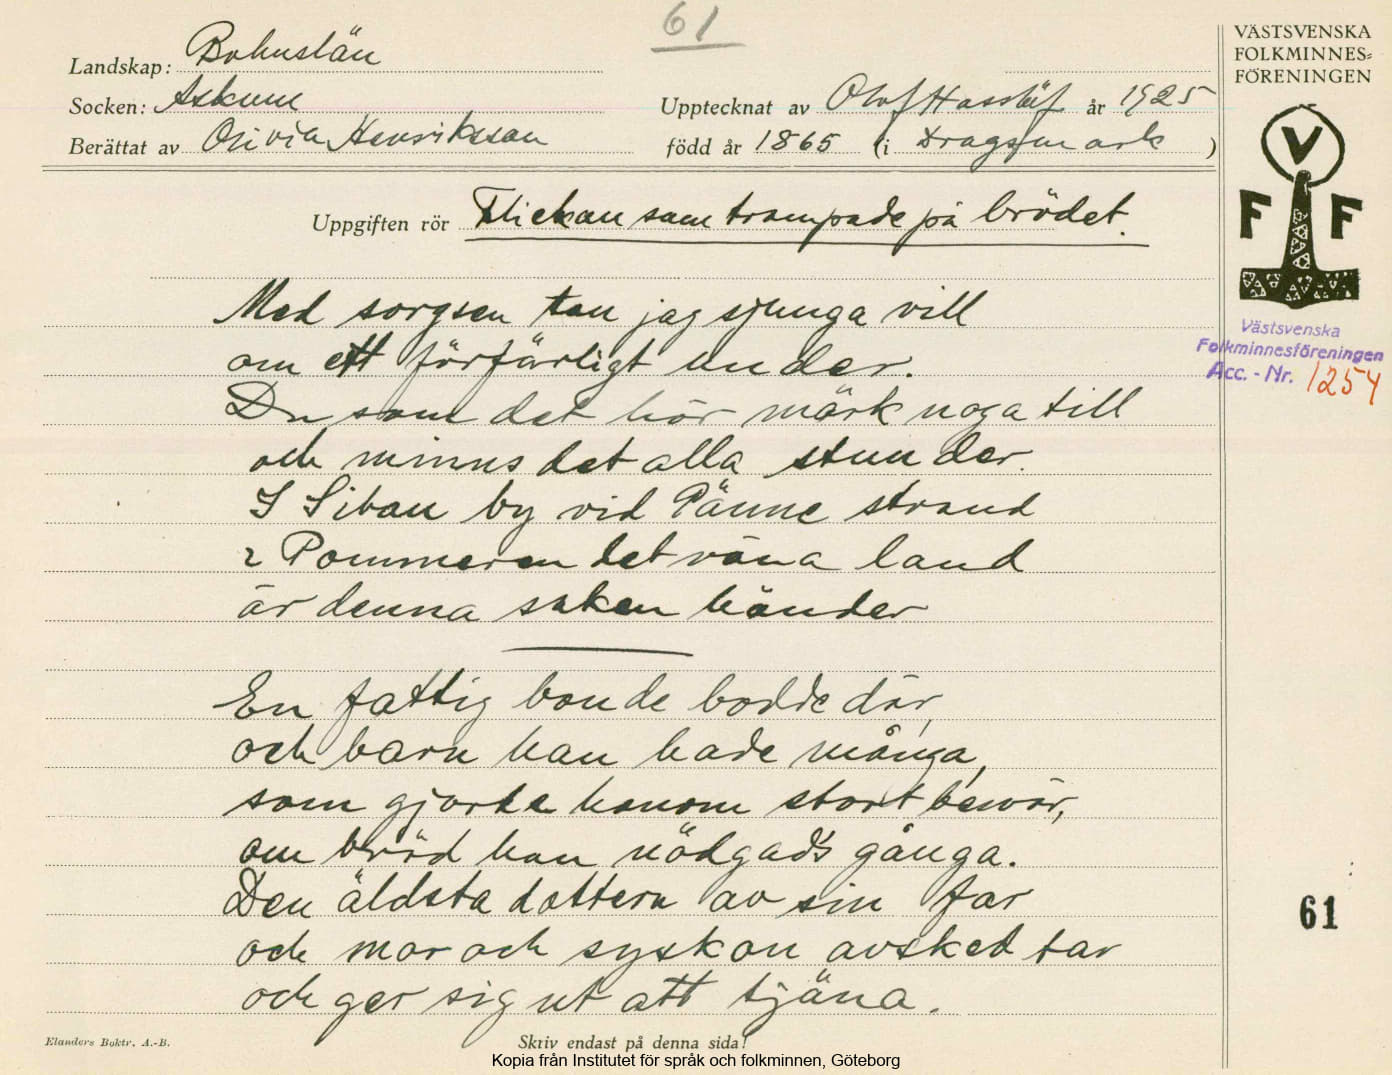 61
Landskap: Bohuslän
Socken: Askum
Berättat av Olivia Henriksson
Upptecknat av Olof Hasslöf år 1925
född år 1865 (i Dragsmark )
VÄSTSVENSKA
FOLKMINNES=
FÖRENINGEN
V
F F
Uppgiften rör Flickan som trampade på brödet.
Västsvenska
Folkminnesföreningen
Acc. - Nr. 1254
Med sorgsen ton jag sjunga vill
om ett förfärligt under.
Du som det hör märk noga till
och minns det alla stunder.
I Siban by vid Pänne strand
i Pommeren det väna land
är denna saken händer
En fattig bonde bodde där,
och barn han hade många,
som gjorde honom stort besvär,
om bröd han nödgads gånga.
Den äldsta dottern av sin far
och mor och syskon avsked tar
och ger sig ut att tjäna.
61
Elanders Boktr. A.-B.
Skriv endast på denna sida!
Kopia från Institutet för språk och folkminnen, Göteborg